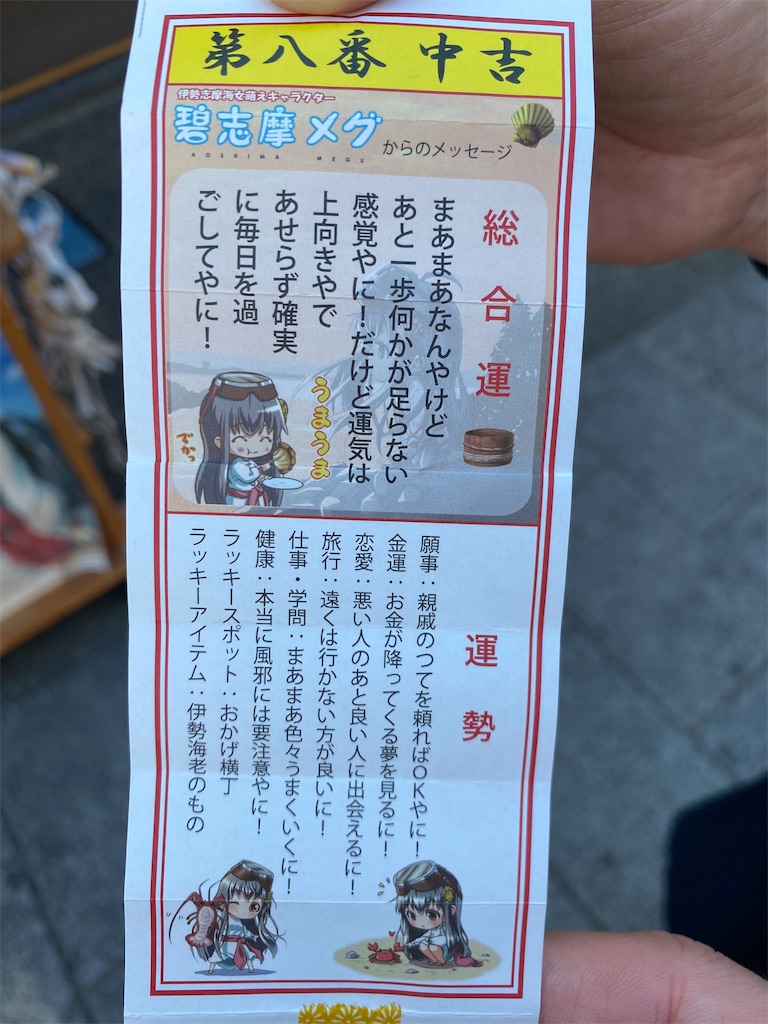 第八番 中吉
伊勢志摩海女萌えキャラクター
碧志摩メグ
AOSHIMA MEGU
からのメッセージ
総合運
まあまあなんやけど
あと一歩何かが足らない
感覚やに！だけど運気は
上向きやで
あせらず確実
に毎日を過
ごしてやに！
うまうま
でかっ
運勢
願事：親戚のつてを頼ればOKやに！
金運：お金が降ってくる夢を見るに！
恋愛：悪い人のあと良い人に出会えるに！
旅行：遠くは行かない方が良いに！
仕事・学問：まあまあ色々うまくいくに！
健康：本当に風邪には要注意やに！
ラッキースポット：おかげ横丁
ラッキーアイテム：伊勢海老のもの